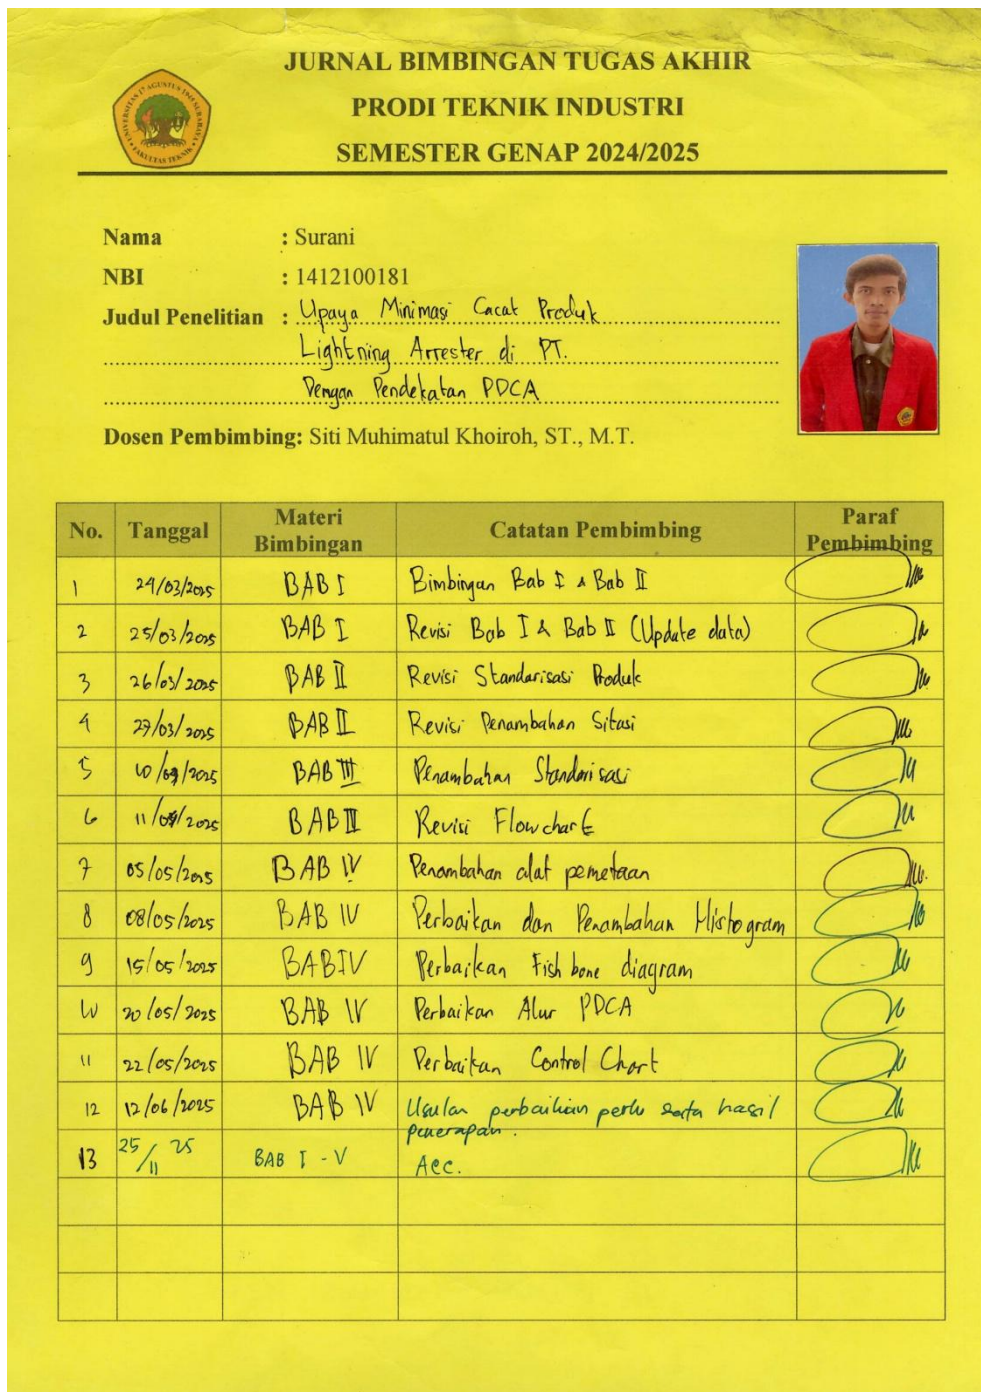 JURNAL BIMBINGAN TUGAS AKHIR
PRODI TEKNIK INDUSTRI
SEMESTER GENAP 2024/2025
UNIVERSITAS 17 AGUSTUS 1945 SURABAYA
FAKULTAS TEKNIK
Nama : Surani
NBI : 1412100181
Judul Penelitian : Upaya Minimasi Cacat Produk
Lightning Arrester di PT.
Dengan Pendekatan PDCA
Dosen Pembimbing: Siti Muhimatul Khoiroh, ST., M.T.
No. Tanggal Materi Bimbingan Catatan Pembimbing Paraf Pembimbing
1 24/03/2025 BAB I Bimbingan Bab I & Bab II
2 25/03/2025 BAB I Revisi Bab I & Bab II (Update data)
3 26/03/2025 BAB II Revisi Standarisasi Produk
4 27/03/2025 BAB II Revisi Penambahan Sitasi
5 10/04/2025 BAB III Penambahan Standarisasi
6 11/04/2025 BAB III Revisi Flowchart
7 05/05/2025 BAB IV Penambahan alat pemetaan
8 08/05/2025 BAB IV Perbaikan dan Penambahan Histogram
9 15/05/2025 BAB IV Perbaikan Fishbone diagram
10 20/05/2025 BAB IV Perbaikan Alur PDCA
11 22/05/2025 BAB IV Perbaikan Control Chart
12 12/06/2025 BAB IV Usulan perbaikan perlu serta hasil
penerapan.
13 25/11 25 BAB I - V Acc.